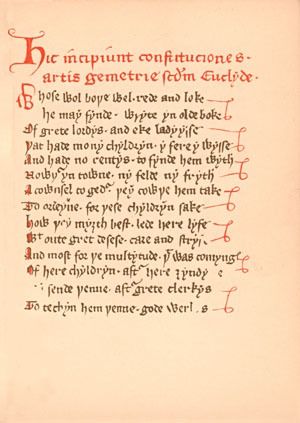 Hic incipiunt constituciones
artis gemetrie scdm Euclyde.
Whose wol boþe wel rede and loke
he may fynde wryte yn olde boke
Of grete lordys and eke ladyysse
Þat had mony chyldryn y fere ywisse
And hade no rentys to fynde hem wyth
Nowþr yn towne ny felde ny fryth
A cownsel to gedr þey cowþe hem take
To ordeyne for þese chyldryn sake
How þey myȝth best lede here lyfe
Wt oute gret desese care and stryf
And most for þe multytude þt was comyng
Of here chyldryn aftr here ȝyndyng
sende þenne aftr grete clerkys
To techyn hem þenne gode werkys